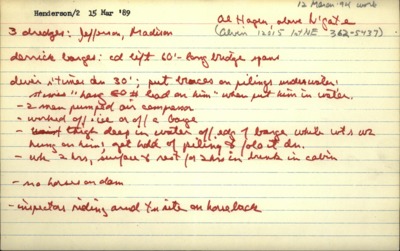 12 March '94 work
Henderson/2 15 Mar '89
Al Hagen, above N'gate
(Alvin 12515 1st NE 362-5437)
3 dredges: Jefferson, Madison
derrick barges: cd lift 60'-long bridge spans
diver: times dn 30'; put braces on pilings underwater
"hang 80 # lead on him" when put him in water.
- 2 man pumped air compressor
- worked off ice or off a barge
- thigh deep in water off edge of barge while wts
hung on him; get hold of piling & dn.
- wk 2 hrs, surface & rest for 2 hrs in bunk in cabin
- no horses on dam
- inspectors riding arnd the site on horseback